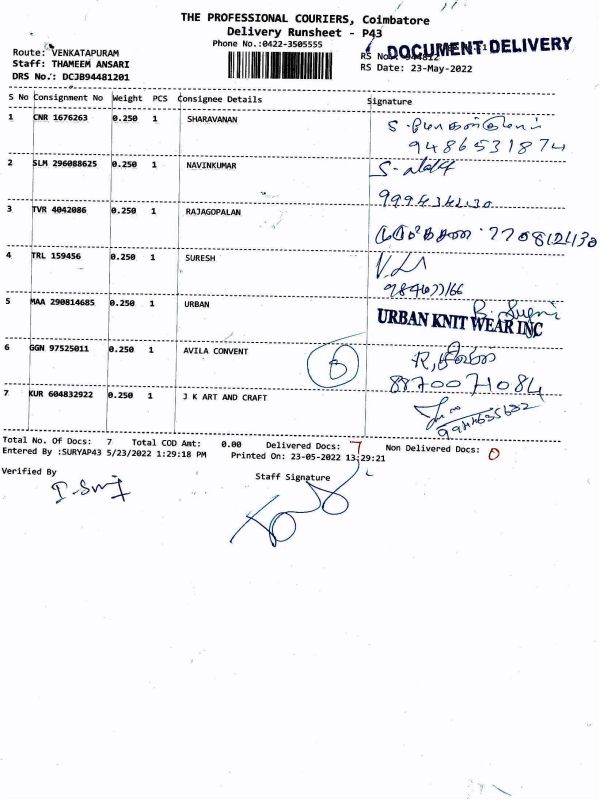 THE PROFESSIONAL COURIERS, Coimbatore
Delivery Runsheet - P43
Phone No.:0422-3505555
DOCUMENT DELIVERY
Route: VENKATAPURAM
Staff: THAMEEM ANSARI
RS Date: 23-May-2022
DRS No.: DCJB94481201
S No Consignment No Weight PCS Consignee Details Signature
1 CNR 1676263 0.250 1 SHARAVANAN
9486531874
2 SLM 296088625 0.250 1 NAVINKUMAR
3 TVR 4042086 0.250 1 RAJAGOPALAN
4 TRL 159456 0.250 1 SURESH
5 MAA 290814685 0.250 1 URBAN
URBAN KNIT WEAR INC
6 GGN 97525011 0.250 1 AVILA CONVENT
8870071084
7 KUR 604832922 0.250 1 J K ART AND CRAFT
Total No. Of Docs: 7 Total COD Amt: 0.00 Delivered Docs: 7 Non Delivered Docs: 0
Entered By :SURYAP43 5/23/2022 1:29:18 PM Printed On: 23-05-2022 13:29:21
Verified By Staff Signature